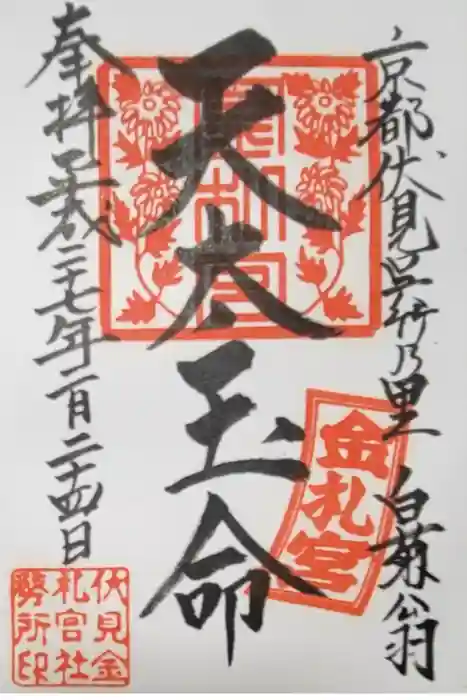 京都伏見呉竹乃里　白菊翁
天太玉命
奉拝　平成二十七年二月二十四日
金札宮
伏見金
札宮社
務所印